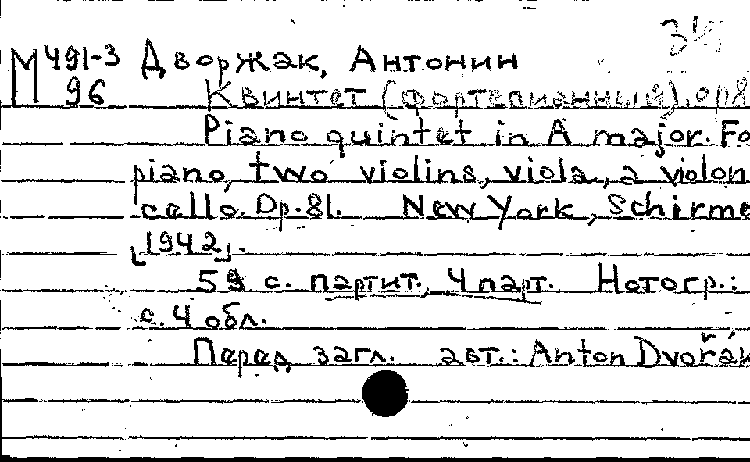 М 491-3 Дворжак, Антонин
96 Квинтет (фортепианный), ор 8
Piano quintet in A major. Fo
piano, two violins, viola, a violon
cello. Op. 81. New York, Schirme
[1942].
59 с. партит., 4 парт. Нотогр.:
с. 4 обл.
Перед загл. авт.: Anton Dvořák